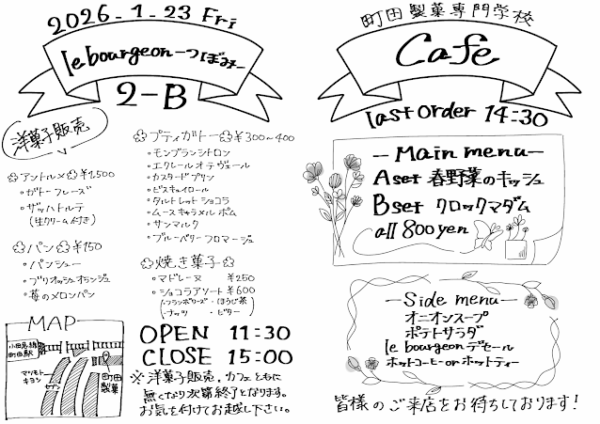 2026.1.23 Fri
le bourgeon -つぼみ-
2-B
洋菓子販売
アントルメ ¥1,500
・ガトーフレーズ
・ザッハトルテ
(生クリーム付き)
パン ¥150
・パンシュー
・ブリオッシュオランジュ
・苺のメロンパン
プティガトー ¥300~400
・モンブランシトロン
・エクレールオテヴェール
・カスタードプリン
・ビスキュイロール
・タルトレットショコラ
・ムースキャラメルポム
・サンマルク
・ブルーベリーフロマージュ
焼き菓子
・マドレーヌ ¥250
・ショコラアソート ¥600
・フランボワーズ・ほうじ茶
・ナッツ ・ビター
MAP
小田急線
町田駅
マツモト
キヨシ
セブン
町田
製菓
OPEN 11:30
CLOSE 15:00
※洋菓子販売、カフェともに
無くなり次第終了となります。
お気を付けてお越し下さい。
町田製菓専門学校
Cafe
last order 14:30
-- Main menu --
A set 春野菜のキッシュ
B set クロックマダム
all 800 yen
-- Side menu --
オニオンスープ
ポテトサラダ
le bourgeon デセール
ホットコーヒー or ホットティー
皆様のご来店をお待ちしております!